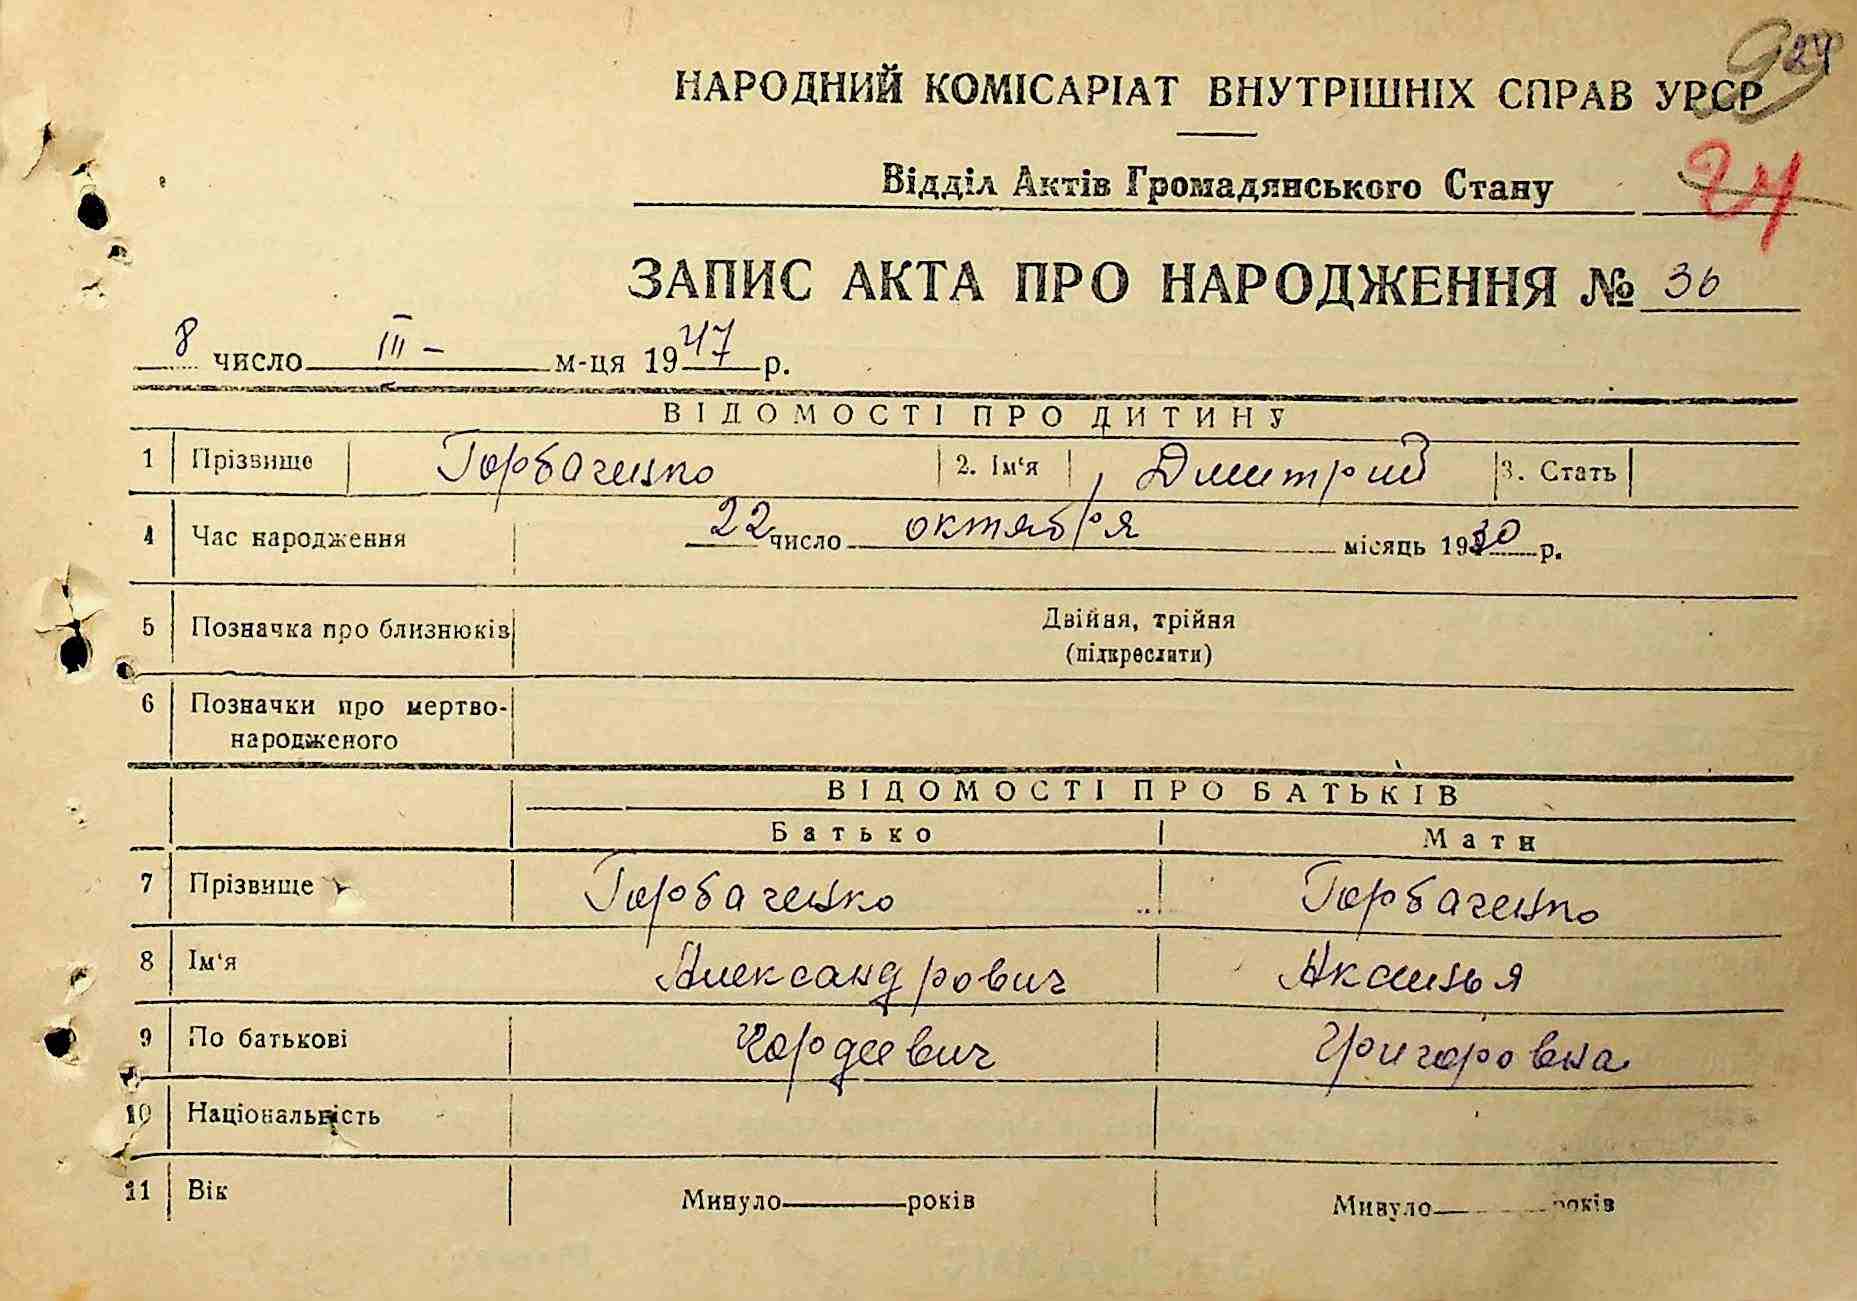 24
НАРОДНИЙ КОМІСАРІАТ ВНУТРІШНІХ СПРАВ УРСР
Відділ Актів Громадянського Стану
24
ЗАПИС АКТА ПРО НАРОДЖЕННЯ № 36
8 число III - м-ця 1947 р.
ВІДОМОСТІ ПРО ДИТИНУ
1 Прізвище Горбаченко 2. Ім'я Дмитрий 3. Стать
4 Час народження 22 число октября місяць 1930 р.
5 Позначка про близнюків Двійня, трійня
(підкреслити)
6 Позначки про мертво-
народженого
ВІДОМОСТІ ПРО БАТЬКІВ
Батько Мати
7 Прізвище Горбаченко Горбаченко
8 Ім'я Александрович Аксинья
9 По батькові Чордеевич Григоровна
10 Національність
11 Вік Минуло років Минуло років